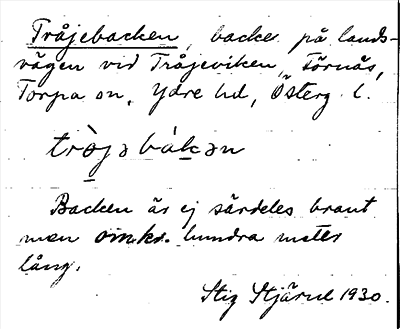 Tråjebacken, backe på lands-
vägen vid Tråjeviken, Törnås,
Torpa sn, Ydre hd, Österg. l.
trò̱jə bák̠ən
Backen är ej särdeles brant
men omkr. hundra meter
lång.
Stig Stjärud 1930.